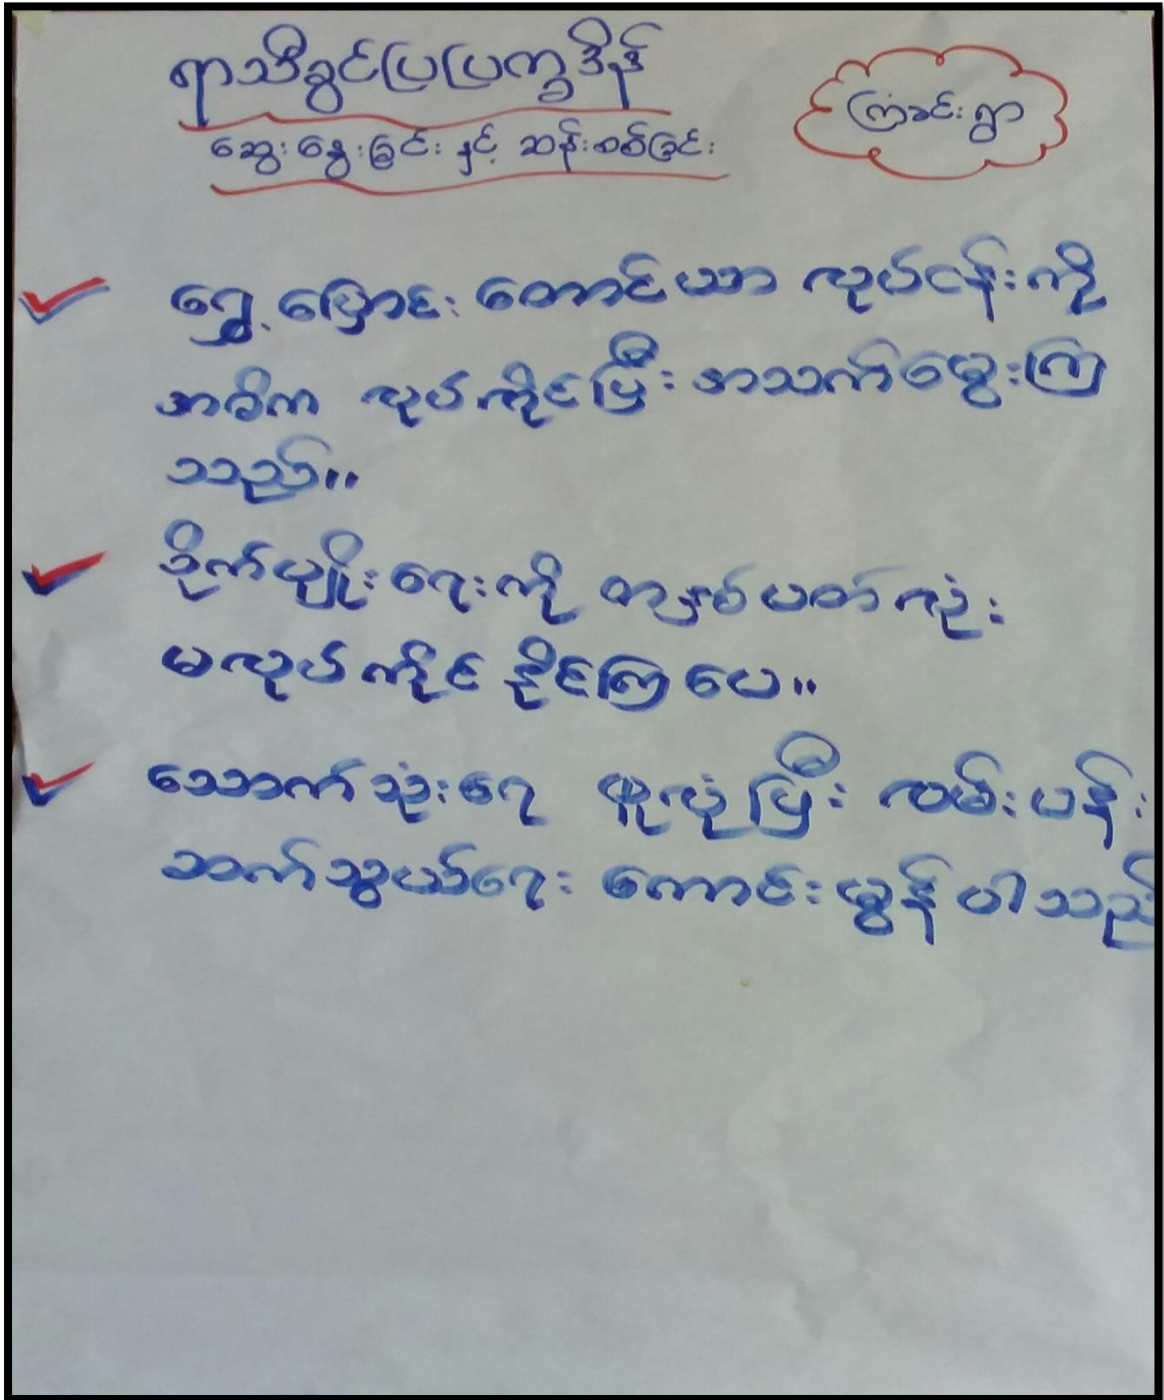 ရာသီခွင်ပြပြက္ခဒိန်
ကြံခင်းရွာ
ဆွေးနွေးခြင်း နှင့် ဆန်းစစ်ခြင်း
ရွှေ့ပြောင်း တောင်ယာ လုပ်ငန်းကို
အဓိက လုပ်ကိုင်ပြီး အသက်မွေးကြ
သည်။
စိုက်ပျိုးရေးကို တနှစ်ပတ်လုံး
မလုပ်ကိုင်နိုင်ကြပေ။
သောက်သုံးရေ ဖူလုံပြီး လမ်းပန်း
ဆက်သွယ်ရေး ကောင်းမွန်ပါသည်